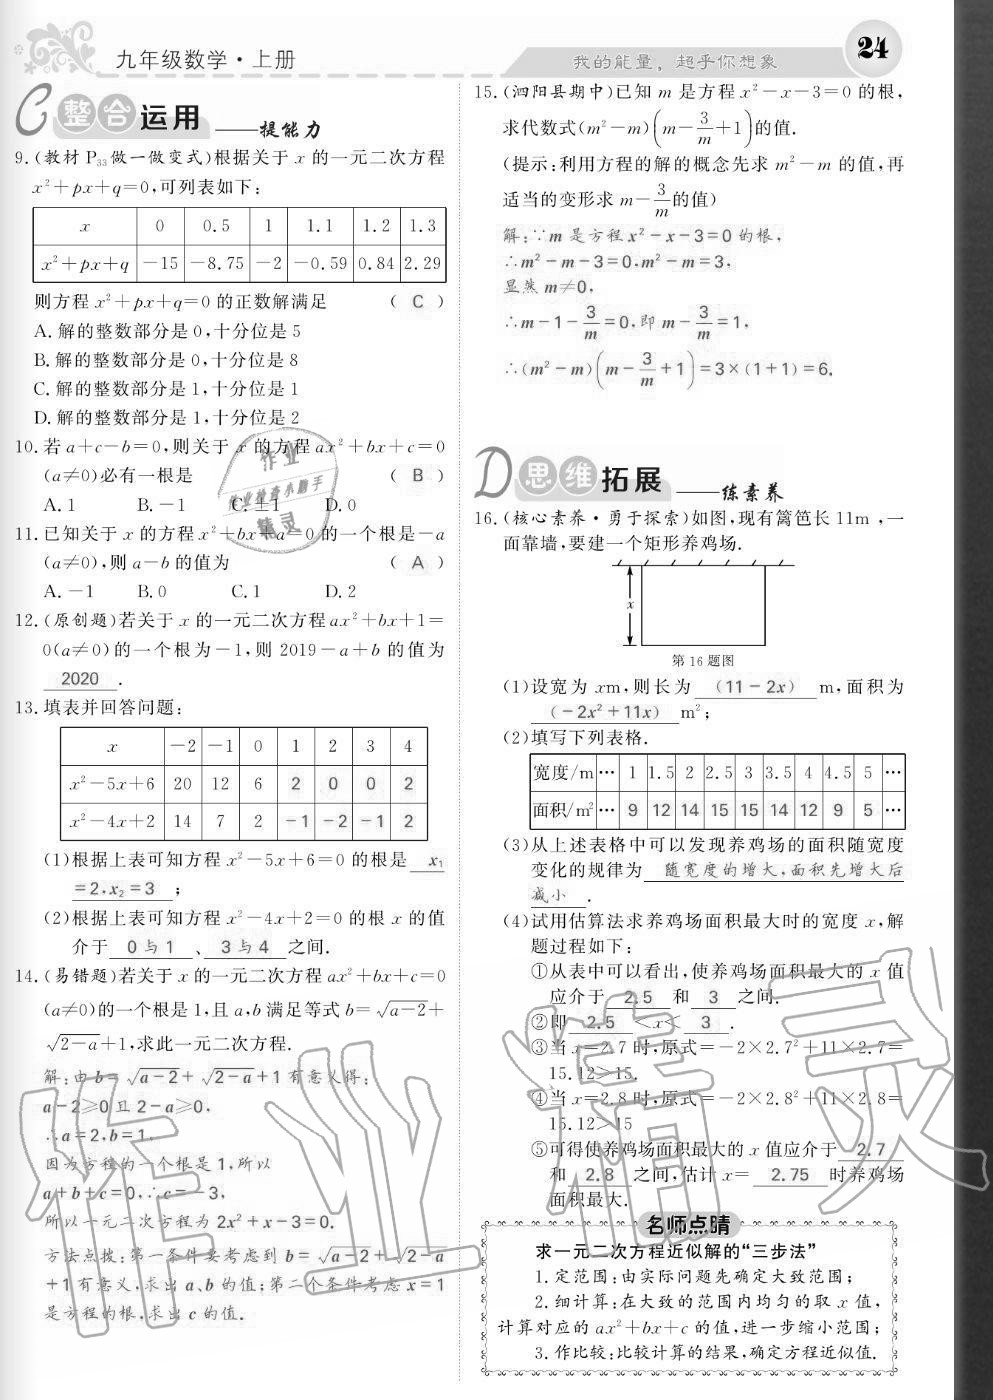 九年级数学·上册
我的能量，超乎你想象
24
C 整合运用 ——提能力
9.(教材 P33 做一做变式)根据关于 x 的一元二次方程
x²+px+q=0,可列表如下:
x 0 0.5 1 1.1 1.2 1.3
x²+px+q -15 -8.75 -2 -0.59 0.84 2.29
则方程 x²+px+q=0 的正数解满足 ( C )
A.解的整数部分是 0,十分位是 5
B.解的整数部分是 0,十分位是 8
C.解的整数部分是 1,十分位是 1
D.解的整数部分是 1,十分位是 2
10.若 a+c-b=0,则关于 x 的方程 ax²+bx+c=0
(a≠0)必有一根是 ( B )
A.1 B.-1 C.±1 D.0
11.已知关于 x 的方程 x²+bx+a=0 的一个根是-a
(a≠0),则 a-b 的值为 ( A )
A.-1 B.0 C.1 D.2
12.(原创题)若关于 x 的一元二次方程 ax²+bx+1=
0(a≠0)的一个根为-1,则 2019-a+b 的值为
2020 .
13.填表并回答问题:
x -2 -1 0 1 2 3 4
x²-5x+6 20 12 6 2 0 0 2
x²-4x+2 14 7 2 -1 -2 -1 2
(1)根据上表可知方程 x²-5x+6=0 的根是 x₁
=2,x₂=3 ;
(2)根据上表可知方程 x²-4x+2=0 的根 x 的值
介于 0与1 、 3与4 之间.
14.(易错题)若关于 x 的一元二次方程 ax²+bx+c=0
(a≠0)的一个根是 1,且 a,b 满足等式 b=√(a-2)+
√(2-a)+1,求此一元二次方程.
解:由 b=√(a-2)+√(2-a)+1 有意义得:
a-2≥0 且 2-a≥0,
∴a=2,b=1,
因为方程的一个根是 1,所以
a+b+c=0,∴c=-3,
所以一元二次方程为 2x²+x-3=0.
方法点拨:第一条件要考虑到 b=√(a-2)+√(2-a)
+1 有意义,求出 a、b 的值;第二个条件考虑 x=1
是方程的根,求出 c 的值.
15.(泗阳县期中)已知 m 是方程 x²-x-3=0 的根,
求代数式(m²-m)(m-3/m+1)的值.
(提示:利用方程的解的概念先求 m²-m 的值,再
适当的变形求 m-3/m的值)
解:∵m 是方程 x²-x-3=0 的根,
∴m²-m-3=0,m²-m=3,
显然 m≠0,
∴m-1-3/m=0,即 m-3/m=1,
∴(m²-m)(m-3/m+1)=3×(1+1)=6.
D 思维拓展 ——练素养
16.(核心素养·勇于探索)如图,现有篱笆长 11m ,一
面靠墙,要建一个矩形养鸡场.
x
第 16 题图
(1)设宽为 xm,则长为 (11-2x) m,面积为
(-2x²+11x) m²;
(2)填写下列表格.
宽度/m … 1 1.5 2 2.5 3 3.5 4 4.5 5 …
面积/m² … 9 12 14 15 15 14 12 9 5 …
(3)从上述表格中可以发现养鸡场的面积随宽度
变化的规律为 随宽度的增大,面积先增大后
减小 .
(4)试用估算法求养鸡场面积最大时的宽度 x,解
题过程如下:
①从表中可以看出,使养鸡场面积最大的 x 值
应介于 2.5 和 3 之间.
②即 2.5 <x< 3 .
③当 x=2.7 时,原式=-2×2.7²+11×2.7=
15.12>15.
④当 x=2.8 时,原式=-2×2.8²+11×2.8=
15.12>15
⑤可得使养鸡场面积最大的 x 值应介于 2.7
和 2.8 之间,估计 x= 2.75 时养鸡场
面积最大.
名师点睛
求一元二次方程近似解的“三步法”
1.定范围:由实际问题先确定大致范围;
2.细计算:在大致的范围内均匀的取 x 值,
计算对应的 ax²+bx+c 的值,进一步缩小范围;
3.作比较:比较计算的结果,确定方程近似值.
作业
作业检查小助手
精灵
作业精灵